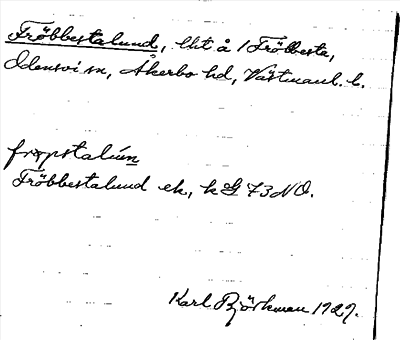 Fröbbestalund, lht å 1 Fröbbesta,
Odensvi sn, Åkerbo hd, Västmanl. l.
frøpstalún
Fröbbestalund ek, k G 73 NO.
Karl Björkman 1927.